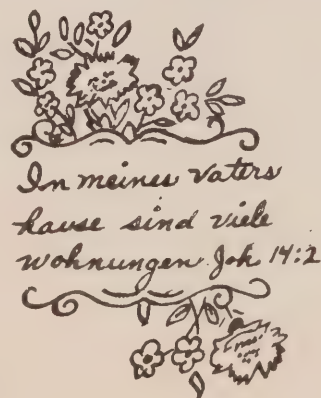 In meines Vaters
hause sind viele
wohnungen Joh 14:2